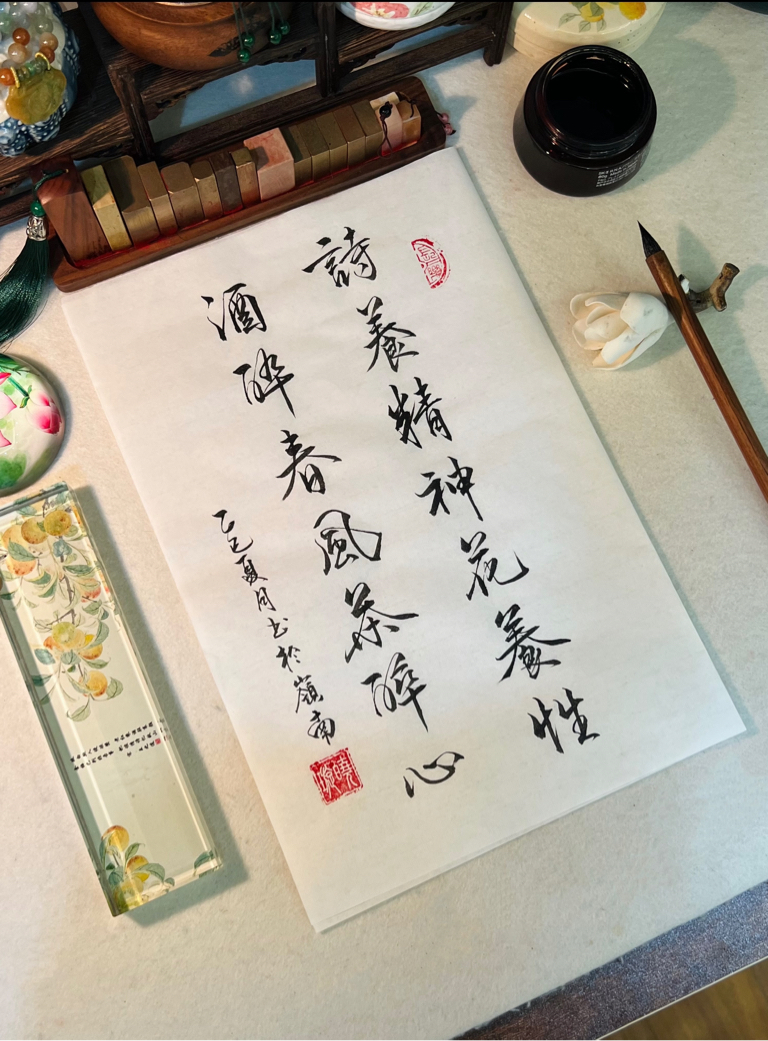 詩養精神花養性
酒醉春風茶醉心
乙巳夏月书於嶺南